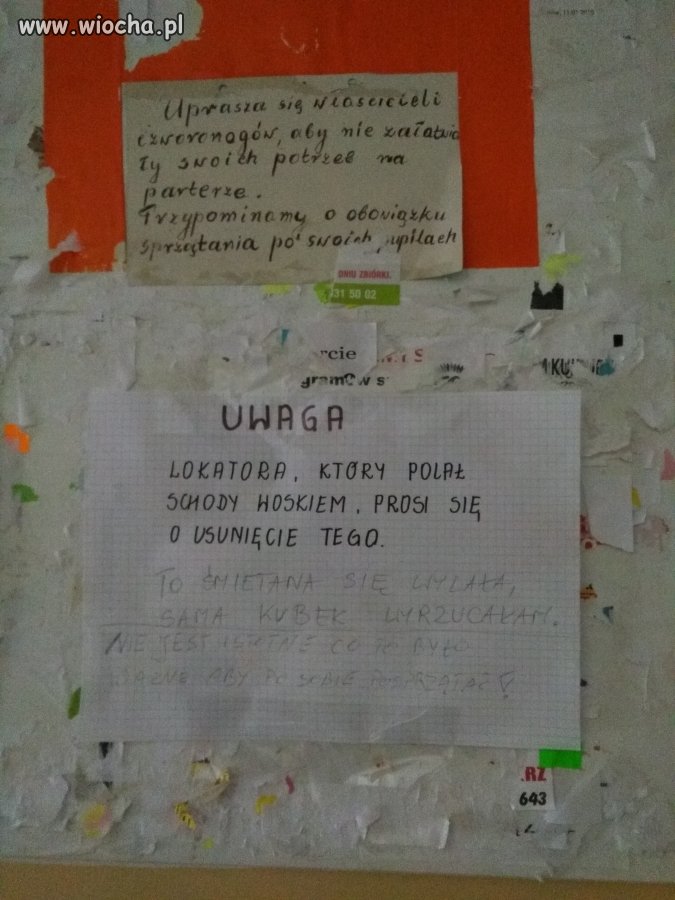 www.wiocha.pl
Uprasza się własicieli
czworonogów, aby nie załatwia
ły swoich potrzeb na
parterze.
Przypominamy o obowiązku
sprzątania po swoich pupilach
DNIU ZBIÓRKI.
31 50 02
rcie
gramów s
UWAGA
LOKATORA, KTÓRY POLAŁ
SCHODY WOSKIEM, PROSI SIĘ
O USUNIĘCIE TEGO.
TO ŚMIETANA SIĘ WYLAŁA,
SAMA KUBEK WYRZUCAŁAM.
NIE JEST ISTOTNE CO TO BYŁO
WAŻNE ABY PO SOBIE POSPRZĄTAĆ!
.RZ
643